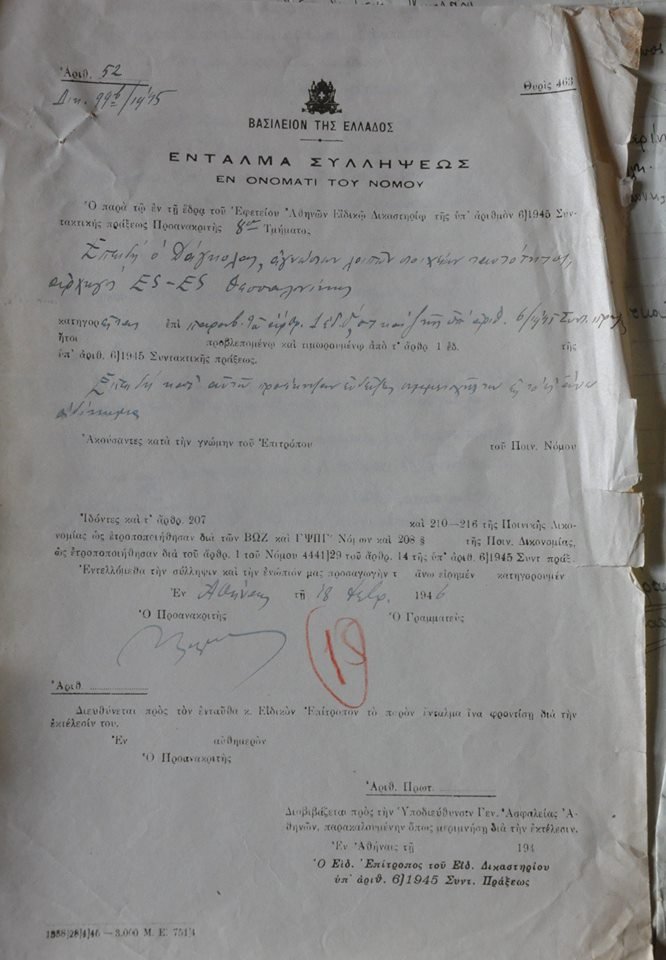 Ἀριθ. 52
Δικ. 99β/1945
Θυρὶς 463
ΒΑΣΙΛΕΙΟΝ ΤΗΣ ΕΛΛΑΔΟΣ
ΕΝΤΑΛΜΑ ΣΥΛΛΗΨΕΩΣ
ΕΝ ΟΝΟΜΑΤΙ ΤΟΥ ΝΟΜΟΥ
Ὁ παρὰ τῷ ἐν τῇ ἕδρᾳ τοῦ Ἐφετείου Ἀθηνῶν Εἰδικῷ Δικαστηρίῳ τῆς ὑπ' ἀριθμὸν 6]1945 Συν-
τακτικῆς πράξεως Προανακριτὴς 8ου Τμήματος
Ἐπειδὴ ὁ Δάγκουλας, ἀγνώστων λοιπῶν στοιχείων ταυτότητος,
ἀρχηγὸς ES-ES Θεσσαλονίκης
κατηγορεῖται ἐπὶ παραβ. τὰ ἄρθρ. 1 ἐδ. ὑπ' ἀριθ. 6/1945 Συντ.
ἤτοι προβλεπομένῳ καὶ τιμωρουμένῳ ἀπὸ τ' ἄρθρ 1 ἐδ. τῆς
ὑπ' ἀριθ. 6]1945 Συντακτικῆς πράξεως.
Ἐπειδὴ κατ' αὐτοῦ προέκυψαν ἐνδείξεις συμμετοχῆς του εἰς τὸ ἄνω
ἀδίκημα
Ἀκούσαντες κατὰ τὴν γνώμην τοῦ Ἐπιτρόπου τοῦ Ποιν. Νόμου
Ἰδόντες καὶ τ' ἄρθρ. 207 καὶ 210—216 τῆς Ποινικῆς Δικο-
νομίας ὡς ἐτροποποιήθησαν διὰ τῶν ΒΩΖ καὶ ΓΨΠΓ' Νόμων καὶ 208 § τῆς Ποιν. Δικονομίας,
ὡς ἐτροποποιήθησαν διὰ τοῦ ἄρθρ. 1 τοῦ Νόμου 4441]29 τοῦ ἄρθρ. 14 τῆς ὑπ' ἀριθ. 6]1945 Συντ πράξ.
Ἐντελλόμεθα τὴν σύλληψιν καὶ τὴν ἐνώπιόν μας προσαγωγὴν τ ἄνω εἰρημέν κατηγορουμέν
Ἐν Ἀθήναις τῇ 18 Φεβρ. 1946
Ὁ Προανακριτὴς Ὁ Γραμματεὺς
19
Ἀριθ.
Διευθύνεται πρὸς τὸν ἐνταῦθα κ. Εἰδικὸν Ἐπίτροπον τὸ παρὸν ἔνταλμα ἵνα φροντίσῃ διὰ τὴν
ἐκτέλεσίν του.
Ἐν αὐθημερὸν
Ὁ Προανακριτὴς
Ἀριθ. Πρωτ.
Διαβιβάζεται πρὸς τὴν Ὑποδιεύθυνσιν Γεν. Ἀσφαλείας Ἀ-
θηνῶν, παρακαλουμένην ὅπως μεριμνήσῃ διὰ τὴν ἐκτέλεσιν.
Ἐν Ἀθήναις τῇ 194
Ὁ Εἰδ. Ἐπίτροπος τοῦ Εἰδ. Δικαστηρίου
ὑπ' ἀριθ. 6]1945 Συντ. Πράξεως
1358]28]4]45 — 3.000 Μ. Ε. 751]4